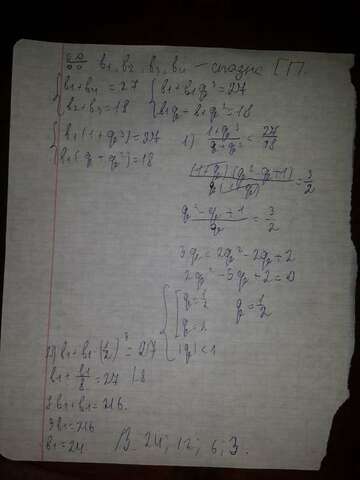 b₁, b₂, b₃, b₄ –
b₁+b₄ = 27
b₂+b₃ = 18
b₁+b₁q³ = 27
b₁q+b₁q² = 18
b₁(1+q³) = 27
b₁(q+q²) = 18
1) (1+q³)/(q+q²) = 27/18
(1+q)(q²-q+1)/q(1+q) = 3/2
(q²-q+1)/q = 3/2
3q = 2q²-2q+2
2q²-5q+2=0
q=1/2
q=2
|q|<1
q=1/2
2) b₁+b₁(1/2)³ = 27
b₁+b₁/8 = 27 |8
8b₁+b₁ = 216
9b₁=216
b₁=24
24; 12; 6; 3.